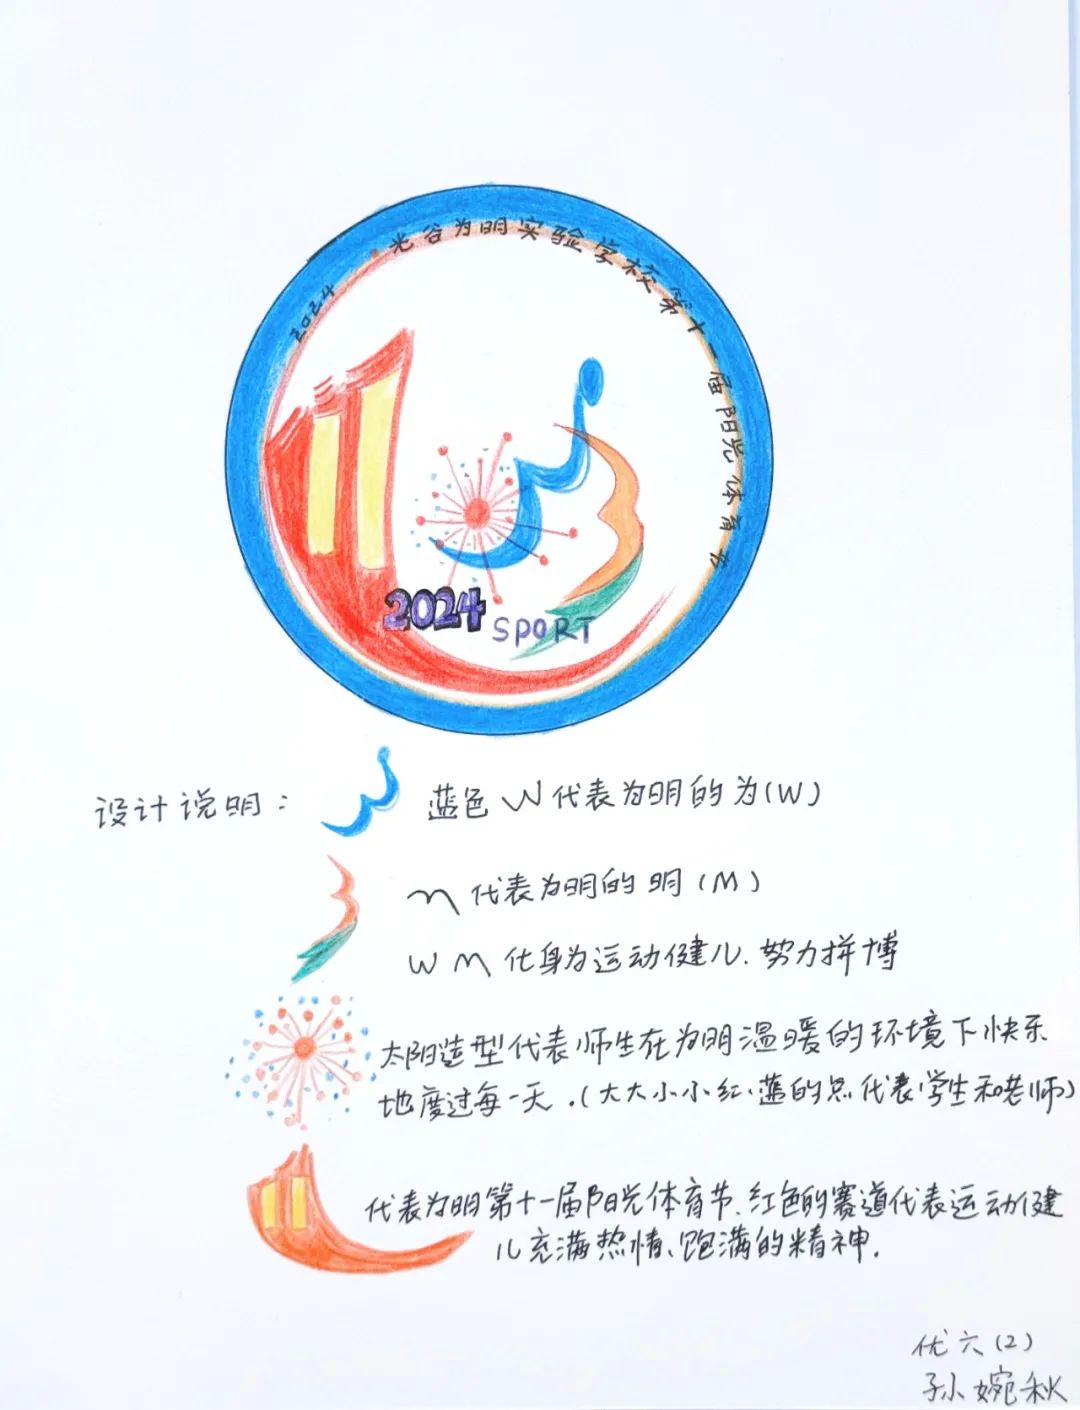 2024 光谷为明实验学校第十一届阳光体育节
2024
SPORT
设计说明： 蓝色W代表为明的为(W)
M代表为明的明(M)
W M化身为运动健儿.努力拼博
太阳造型代表师生在为明温暖的环境下快乐
地度过每一天.(大大小小红、蓝的点代表学生和老师)
代表为明第十一届阳光体育节、红色的赛道代表运动健
儿充满热情、饱满的精神.
优六(2)
孙婉秋